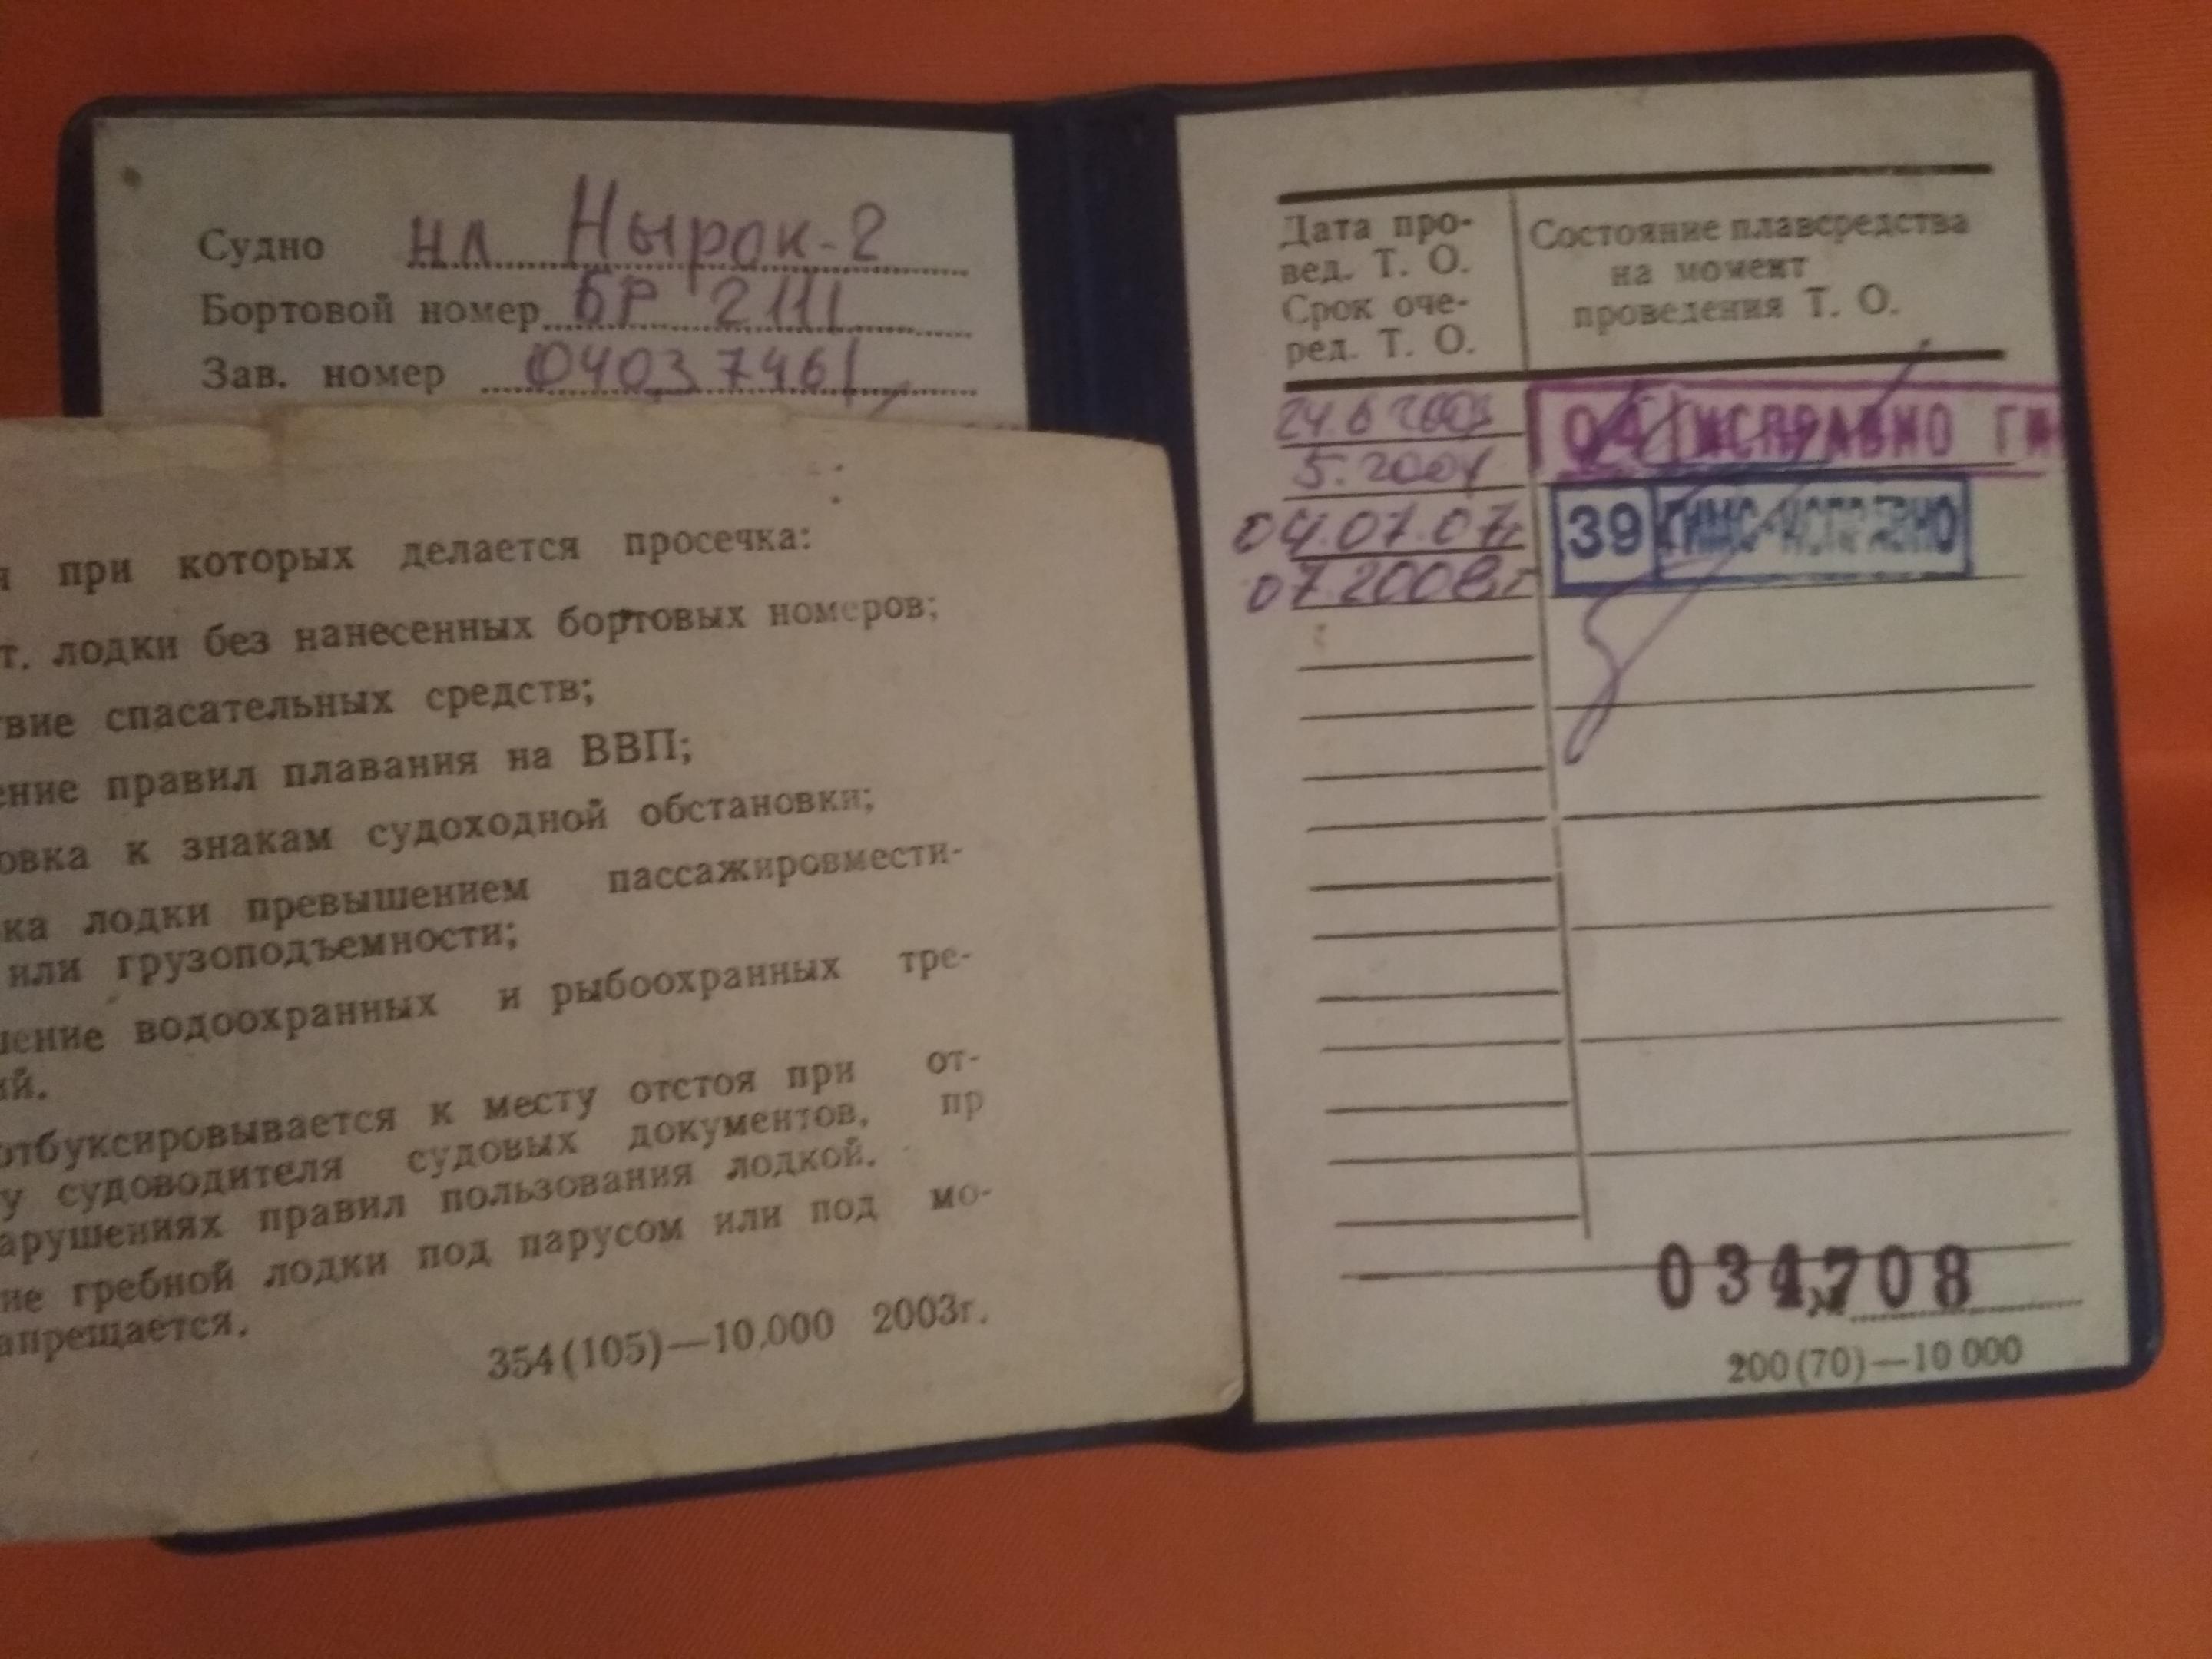 Судно нл Нырок-2
Бортовой номер БР 2111
Зав. номер 04037461
при которых делается просечка:
т. лодки без нанесенных бортовых номеров;
вие спасательных средств;
ение правил плавания на ВВП;
овка к знакам судоходной обстановки;
ка лодки превышением пассажировмести-
или грузоподъемности;
шение водоохранных и рыбоохранных тре-
ий.
отбуксировывается к месту отстоя при от-
у судоводителя судовых документов, пр
арушениях правил пользования лодкой.
ие гребной лодки под парусом или под мо-
апрещается.
354(105)—10.000 2003г.
Дата про-
вед. Т. О.
Срок оче-
ред. Т. О.
Состояние плавсредства
на момент
проведения Т. О.
24.6 2003
5.2004
04 ИСПРАВНО ГИ
04.07.07г
07.2008г
39 ГИМС-ИСПРАВНО
034708
200(70)—10 000